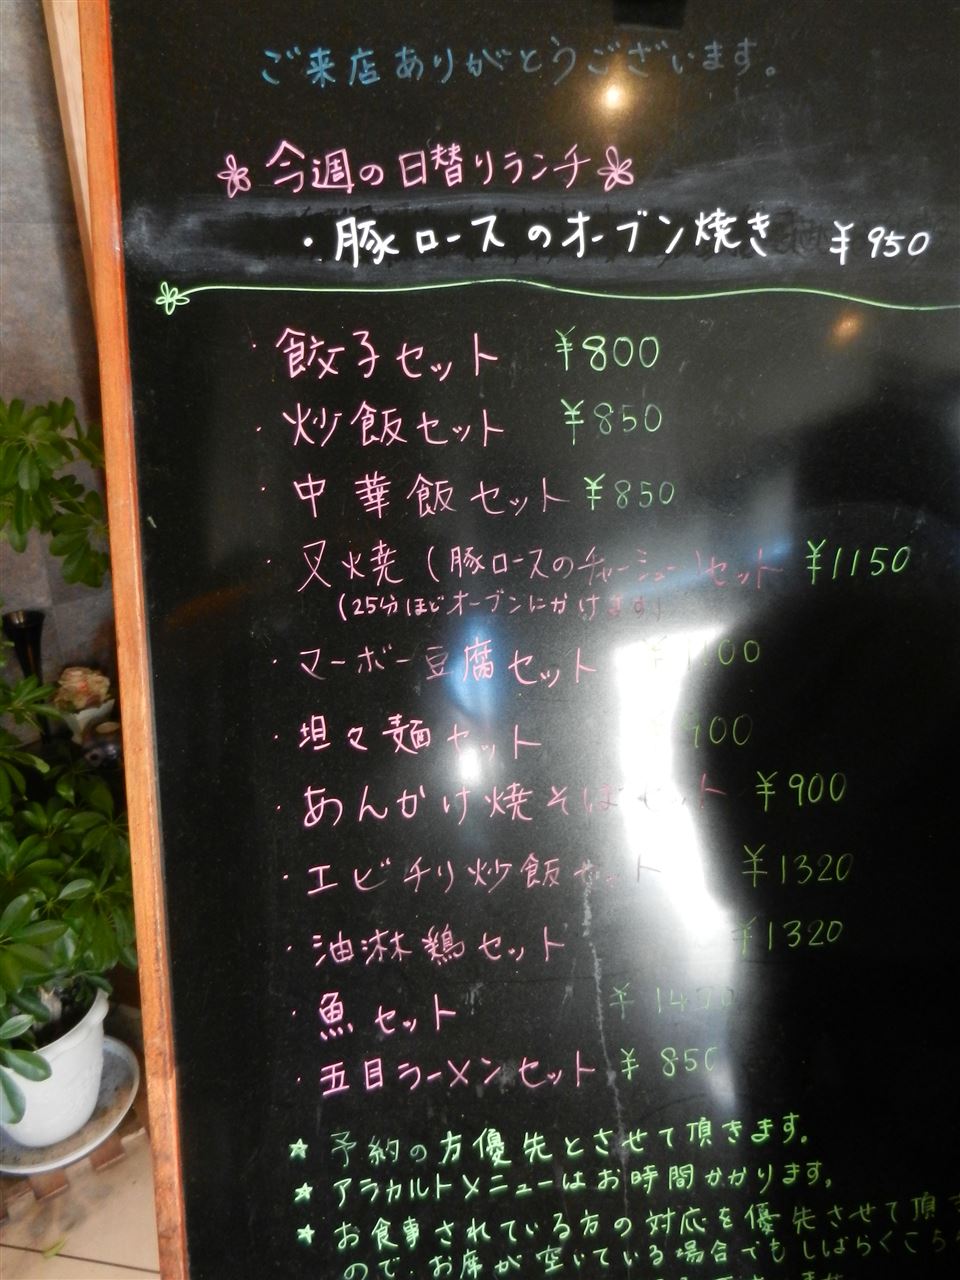 ご来店ありがとうございます。
今週の日替りランチ
・豚ロースのオーブン焼き ¥950
・餃子セット ¥800
・炒飯セット ¥850
・中華飯セット ¥850
・叉焼(豚ロースのチャーシュー)セット ¥1150
(25分ほどオーブンにかけます)
・マーボー豆腐セット ¥1100
・坦々麺セット ¥900
・あんかけ焼そばセット ¥900
・エビチリ炒飯セット ¥1320
・油淋鶏セット ¥1320
・魚セット
・五目ラーメンセット ¥850
★予約の方優先とさせて頂きます。
★アラカルトメニューはお時間かかります。
★お食事されている方の対応を優先させて頂
ので、お席が空いている場合でもしばらくこちら